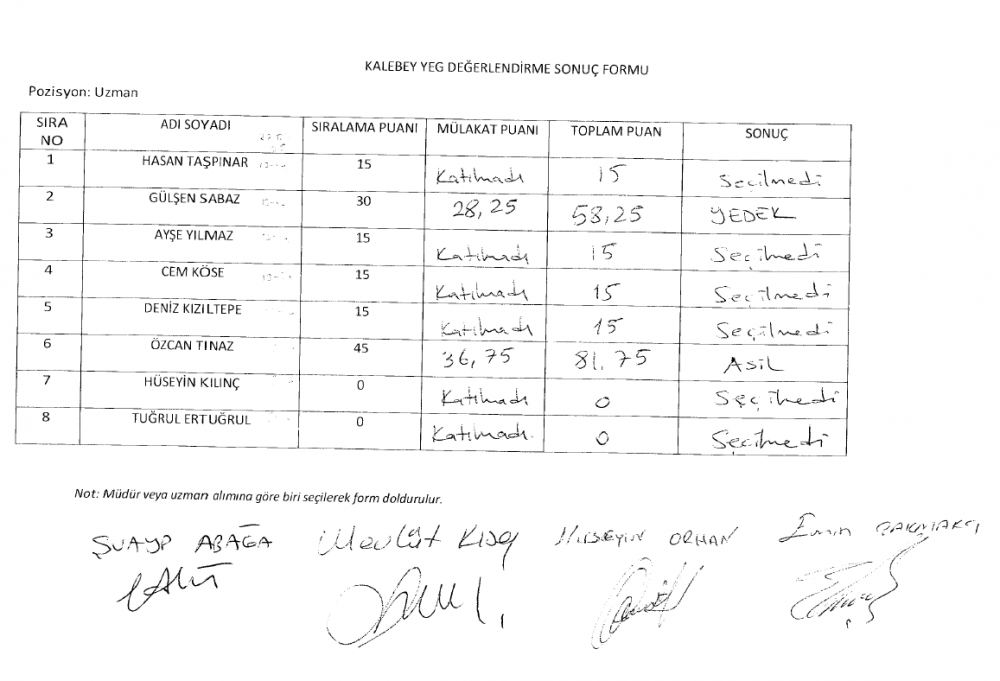 KALEBEY YEG DEĞERLENDİRME SONUÇ FORMU
Pozisyon: Uzman
SIRA NO ADI SOYADI SIRALAMA PUANI MÜLAKAT PUANI TOPLAM PUAN SONUÇ
1 HASAN TAŞPINAR 15 Katılmadı 15 Seçilmedi
2 GÜLŞEN SABAZ 30 28,25 58,25 YEDEK
3 AYŞE YILMAZ 15 Katılmadı 15 Seçilmedi
4 CEM KÖSE 15 Katılmadı 15 Seçilmedi
5 DENİZ KIZILTEPE 15 Katılmadı 15 Seçilmedi
6 ÖZCAN TINAZ 45 36,75 81,75 ASİL
7 HÜSEYİN KILINÇ 0 Katılmadı 0 Seçilmedi
8 TUĞRUL ERTUĞRUL 0 Katılmadı. 0 Seçilmedi
Not: Müdür veya uzman alımına göre biri seçilerek form doldurulur.
ŞUAYP ABAĞA Mevlüt HÜSEYİN ORHAN Emin ÇAKMAKÇI